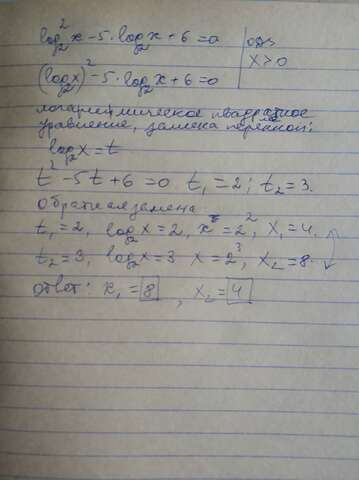 log₂²x - 5·log₂x + 6 = 0 | ОДЗ
(log₂x)² - 5·log₂x + 6 = 0 | x > 0
логарифмическое квадратное
уравнение, замена переменной:
log₂x = t
t² - 5t + 6 = 0 t₁ = 2; t₂ = 3.
Обратная замена
t₁ = 2, log₂x = 2, x = 2², x₁ = 4.
t₂ = 3, log₂x = 3 x = 2³, x₂ = 8.
Ответ: x₁ = 8, x₂ = 4